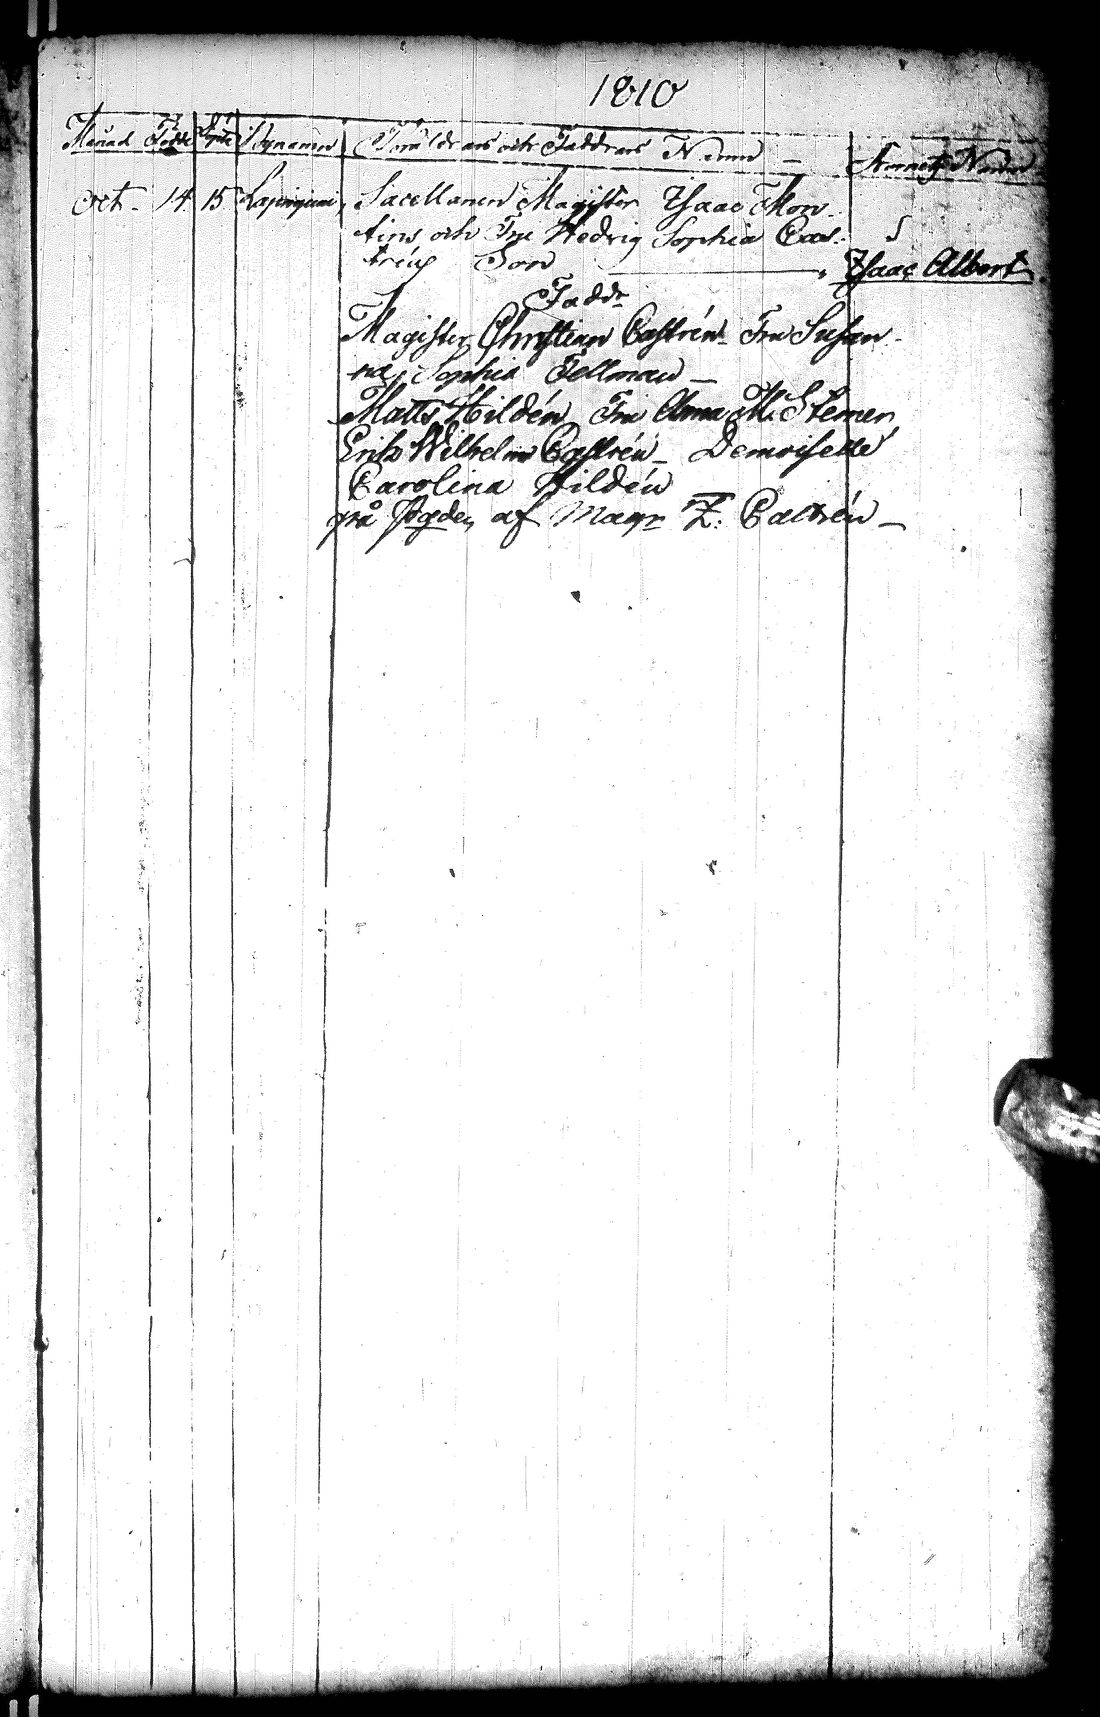 1810
Månad Födde Döpte Bynamn Föräldrars och Faddrars Namn — Barnets Namn
Oct. 14 15 Sacellanen Magister Isaac Mon-
tins och Fru Hedvig Sophia Cas-
tréns Son Isaac Albert
Fadd.
Magister Christian Castrén Fru Susan-
na Sophia Fellman —
Matts Hildén Fru Anna M. Stenier
Eric Wilhelm Castrén — Demoiselle
Carolina Hildén
på af Mag. Z. Castrén —